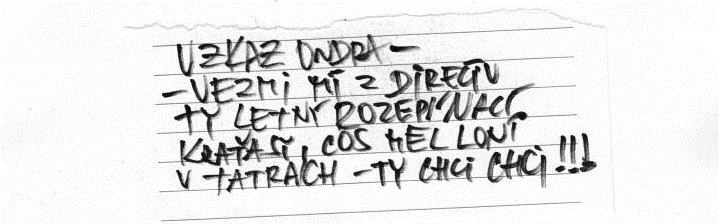 VZKAZ ONDRA –
– VEZMI MÍ Z DIRECTU
TY LETNÍ ROZEPÍNACÍ
KRAŤASY, COS MĚL LONI
V TATRÁCH – TY CHCI CHCI !!!